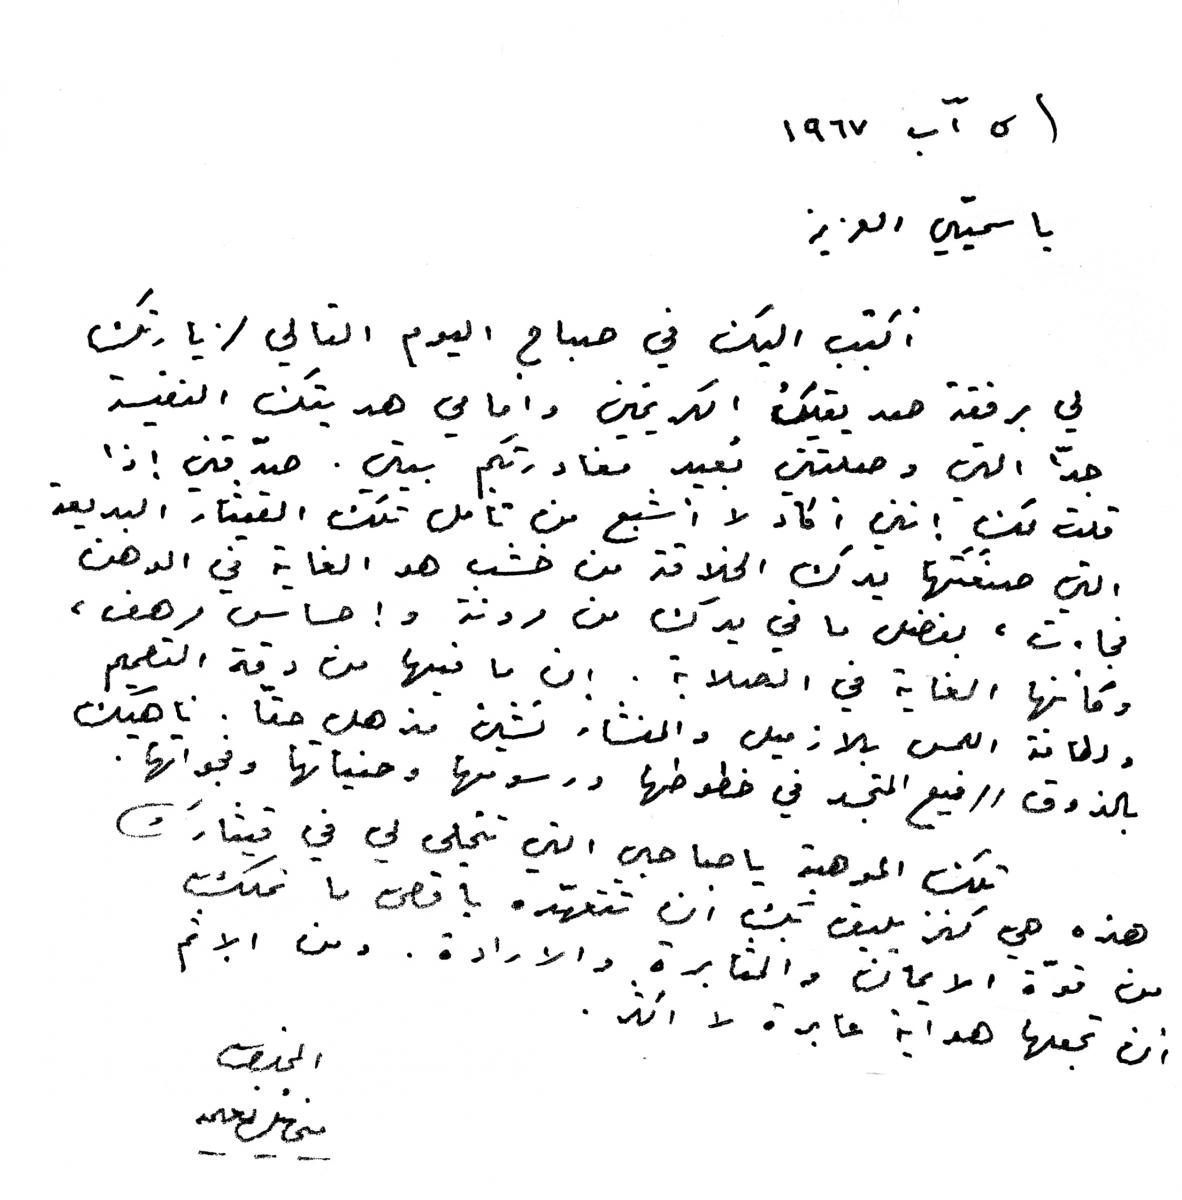 ١٥ آب ١٩٦٧
يا سميّي العزيز
أكتب اليك في صباح اليوم التالي لزيارتك
لي برفقة صديقيك الكريمين وأمامي هديتك النفيسة
جدًّا التي وصلتني بُعيد مغادرتكم بيتي. صدّقني إذا
قلت لك إنني أكاد لا أشبع من تأمل تلك القيثار البديعة
التي صنعتها يدك الخلاقة من خشب هو الغاية في الوهن
فجاءت، بفضل ما في يدك من مرونة وإحساس مرهف،
وكأنها الغاية في الصلابة. إن ما فيها من دقة التصميم
ولطافة اللمس بالازميل والمنشار لشيء مذهل حقًّا. ناهيك
بالذوق الرفيع المتجسد في خطوطها ورسومها وحنياتها وفجواتها.
تلك الموهبة يا صاحبي التي تتجلى لي في قيثارك
هذه هي كنز يليق بك أن تتعهّده بأقصى ما تملك
من قوّة الايمان والمثابرة والارادة. ومن الاثم
أن تجعلها هواية عابرة لا اكثر.
المخلص
ميخائيل نعيمه